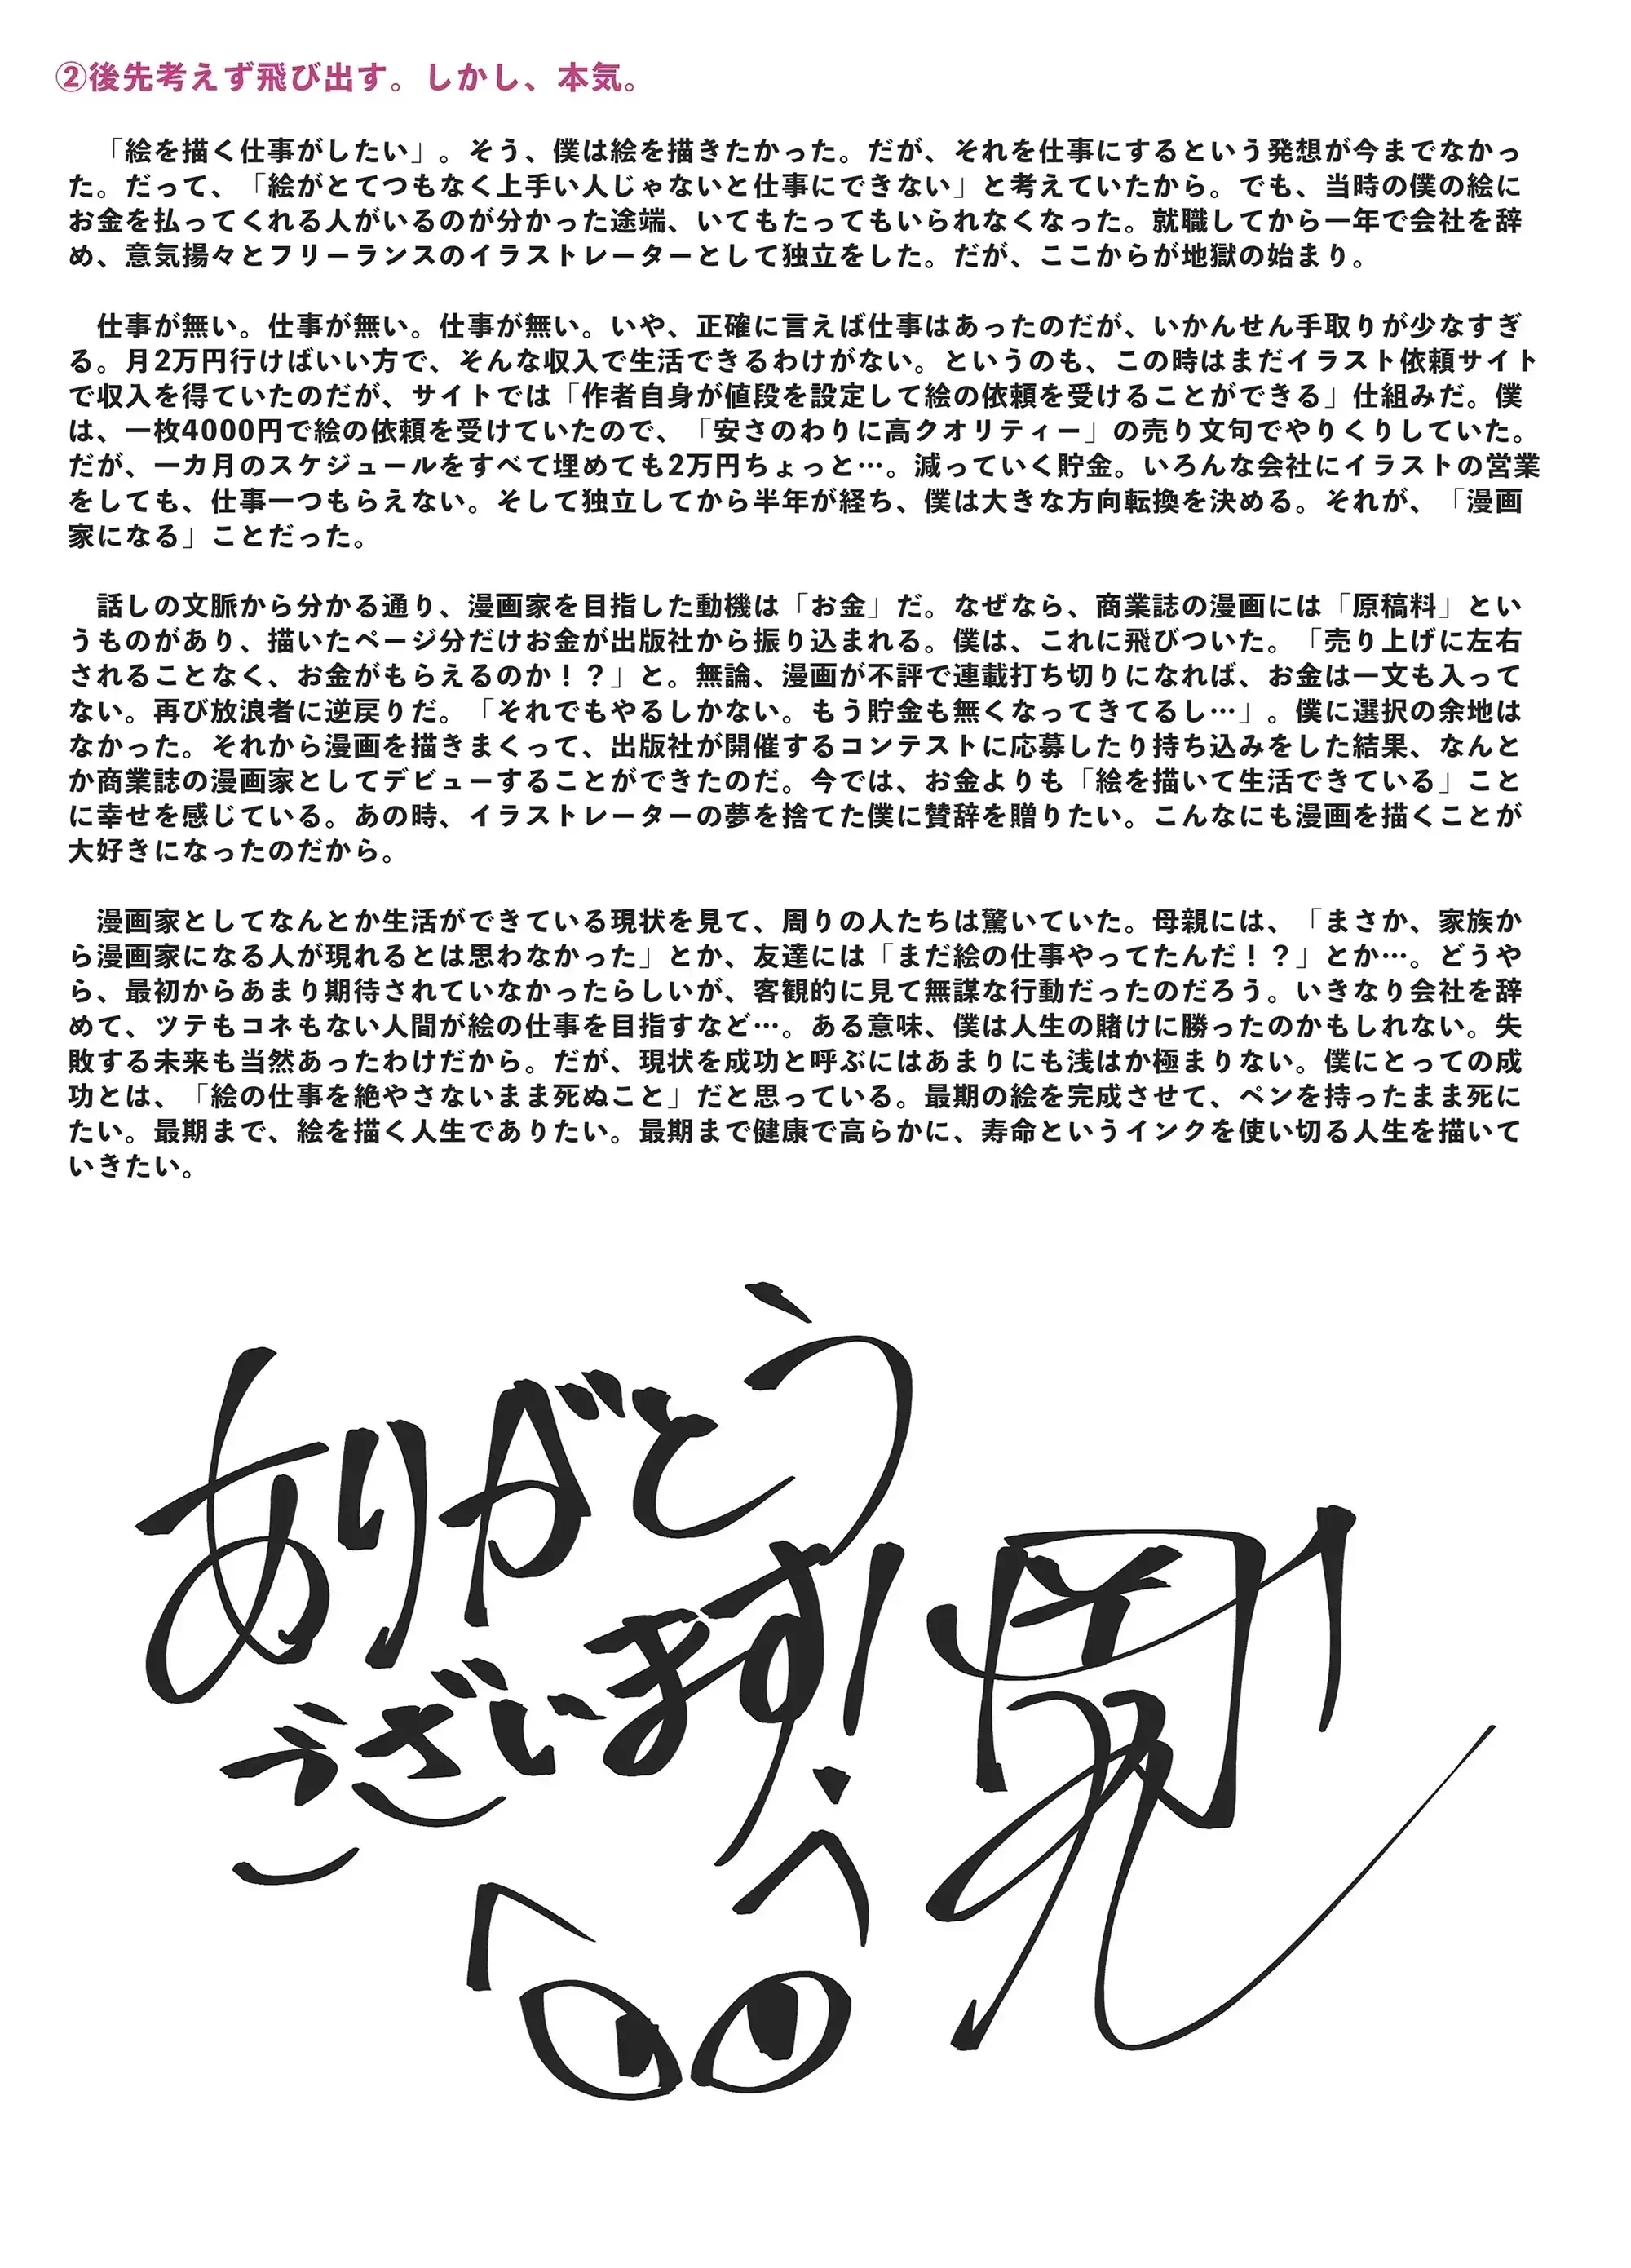 ②後先考えず飛び出す。しかし、本気。
「絵を描く仕事がしたい」。そう、僕は絵を描きたかった。だが、それを仕事にするという発想が今までなかっ
た。だって、「絵がとてつもなく上手い人じゃないと仕事にできない」と考えていたから。でも、当時の僕の絵に
お金を払ってくれる人がいるのが分かった途端、いてもたってもいられなくなった。就職してから一年で会社を辞
め、意気揚々とフリーランスのイラストレーターとして独立をした。だが、ここからが地獄の始まり。
仕事が無い。仕事が無い。仕事が無い。いや、正確に言えば仕事はあったのだが、いかんせん手取りが少なすぎ
る。月2万円行けばいい方で、そんな収入で生活できるわけがない。というのも、この時はまだイラスト依頼サイト
で収入を得ていたのだが、サイトでは「作者自身が値段を設定して絵の依頼を受けることができる」仕組みだ。僕
は、一枚4000円で絵の依頼を受けていたので、「安さのわりに高クオリティー」の売り文句でやりくりしていた。
だが、一カ月のスケジュールをすべて埋めても2万円ちょっと…。減っていく貯金。いろんな会社にイラストの営業
をしても、仕事一つもらえない。そして独立してから半年が経ち、僕は大きな方向転換を決める。それが、「漫画
家になる」ことだった。
話しの文脈から分かる通り、漫画家を目指した動機は「お金」だ。なぜなら、商業誌の漫画には「原稿料」とい
うものがあり、描いたページ分だけお金が出版社から振り込まれる。僕は、これに飛びついた。「売り上げに左右
されることなく、お金がもらえるのか！？」と。無論、漫画が不評で連載打ち切りになれば、お金は一文も入って
ない。再び放浪者に逆戻りだ。「それでもやるしかない。もう貯金も無くなってきてるし…」。僕に選択の余地は
なかった。それから漫画を描きまくって、出版社が開催するコンテストに応募したり持ち込みをした結果、なんと
か商業誌の漫画家としてデビューすることができたのだ。今では、お金よりも「絵を描いて生活できている」こと
に幸せを感じている。あの時、イラストレーターの夢を捨てた僕に賛辞を贈りたい。こんなにも漫画を描くことが
大好きになったのだから。
漫画家としてなんとか生活ができている現状を見て、周りの人たちは驚いていた。母親には、「まさか、家族か
ら漫画家になる人が現れるとは思わなかった」とか、友達には「まだ絵の仕事やってたんだ！？」とか…。どうや
ら、最初からあまり期待されていなかったらしいが、客観的に見て無謀な行動だったのだろう。いきなり会社を辞
めて、ツテもコネもない人間が絵の仕事を目指すなど…。ある意味、僕は人生の賭けに勝ったのかもしれない。失
敗する未来も当然あったわけだから。だが、現状を成功と呼ぶにはあまりにも浅はか極まりない。僕にとっての成
功とは、「絵の仕事を絶やさないまま死ぬこと」だと思っている。最期の絵を完成させて、ペンを持ったまま死に
たい。最期まで、絵を描く人生でありたい。最期まで健康で高らかに、寿命というインクを使い切る人生を描いて
いきたい。
ありがとう
ございます!